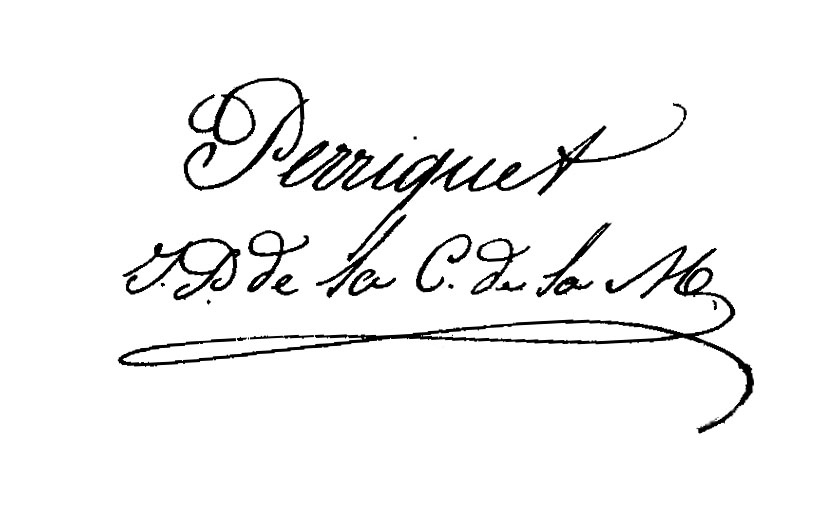 Perriquet
S. D. de la C. de la M.